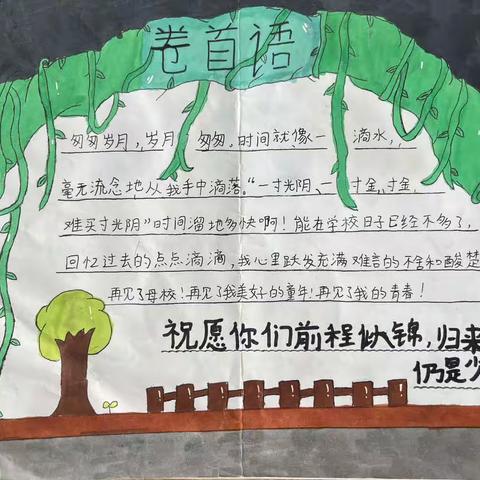 卷首语
匆匆岁月,岁月匆匆,时间就像一滴水,
毫无流念地从我手中滴落。“一寸光阴、一寸金,寸金
难买寸光阴”时间溜地多快啊!能在学校日子已经不多了,
回忆过去的点点滴滴,我心里跃发充满难言的不舍和酸楚
再见了母校!再见了我美好的童年!再见了我的青春!
祝愿你们前程似锦,归来
仍是少